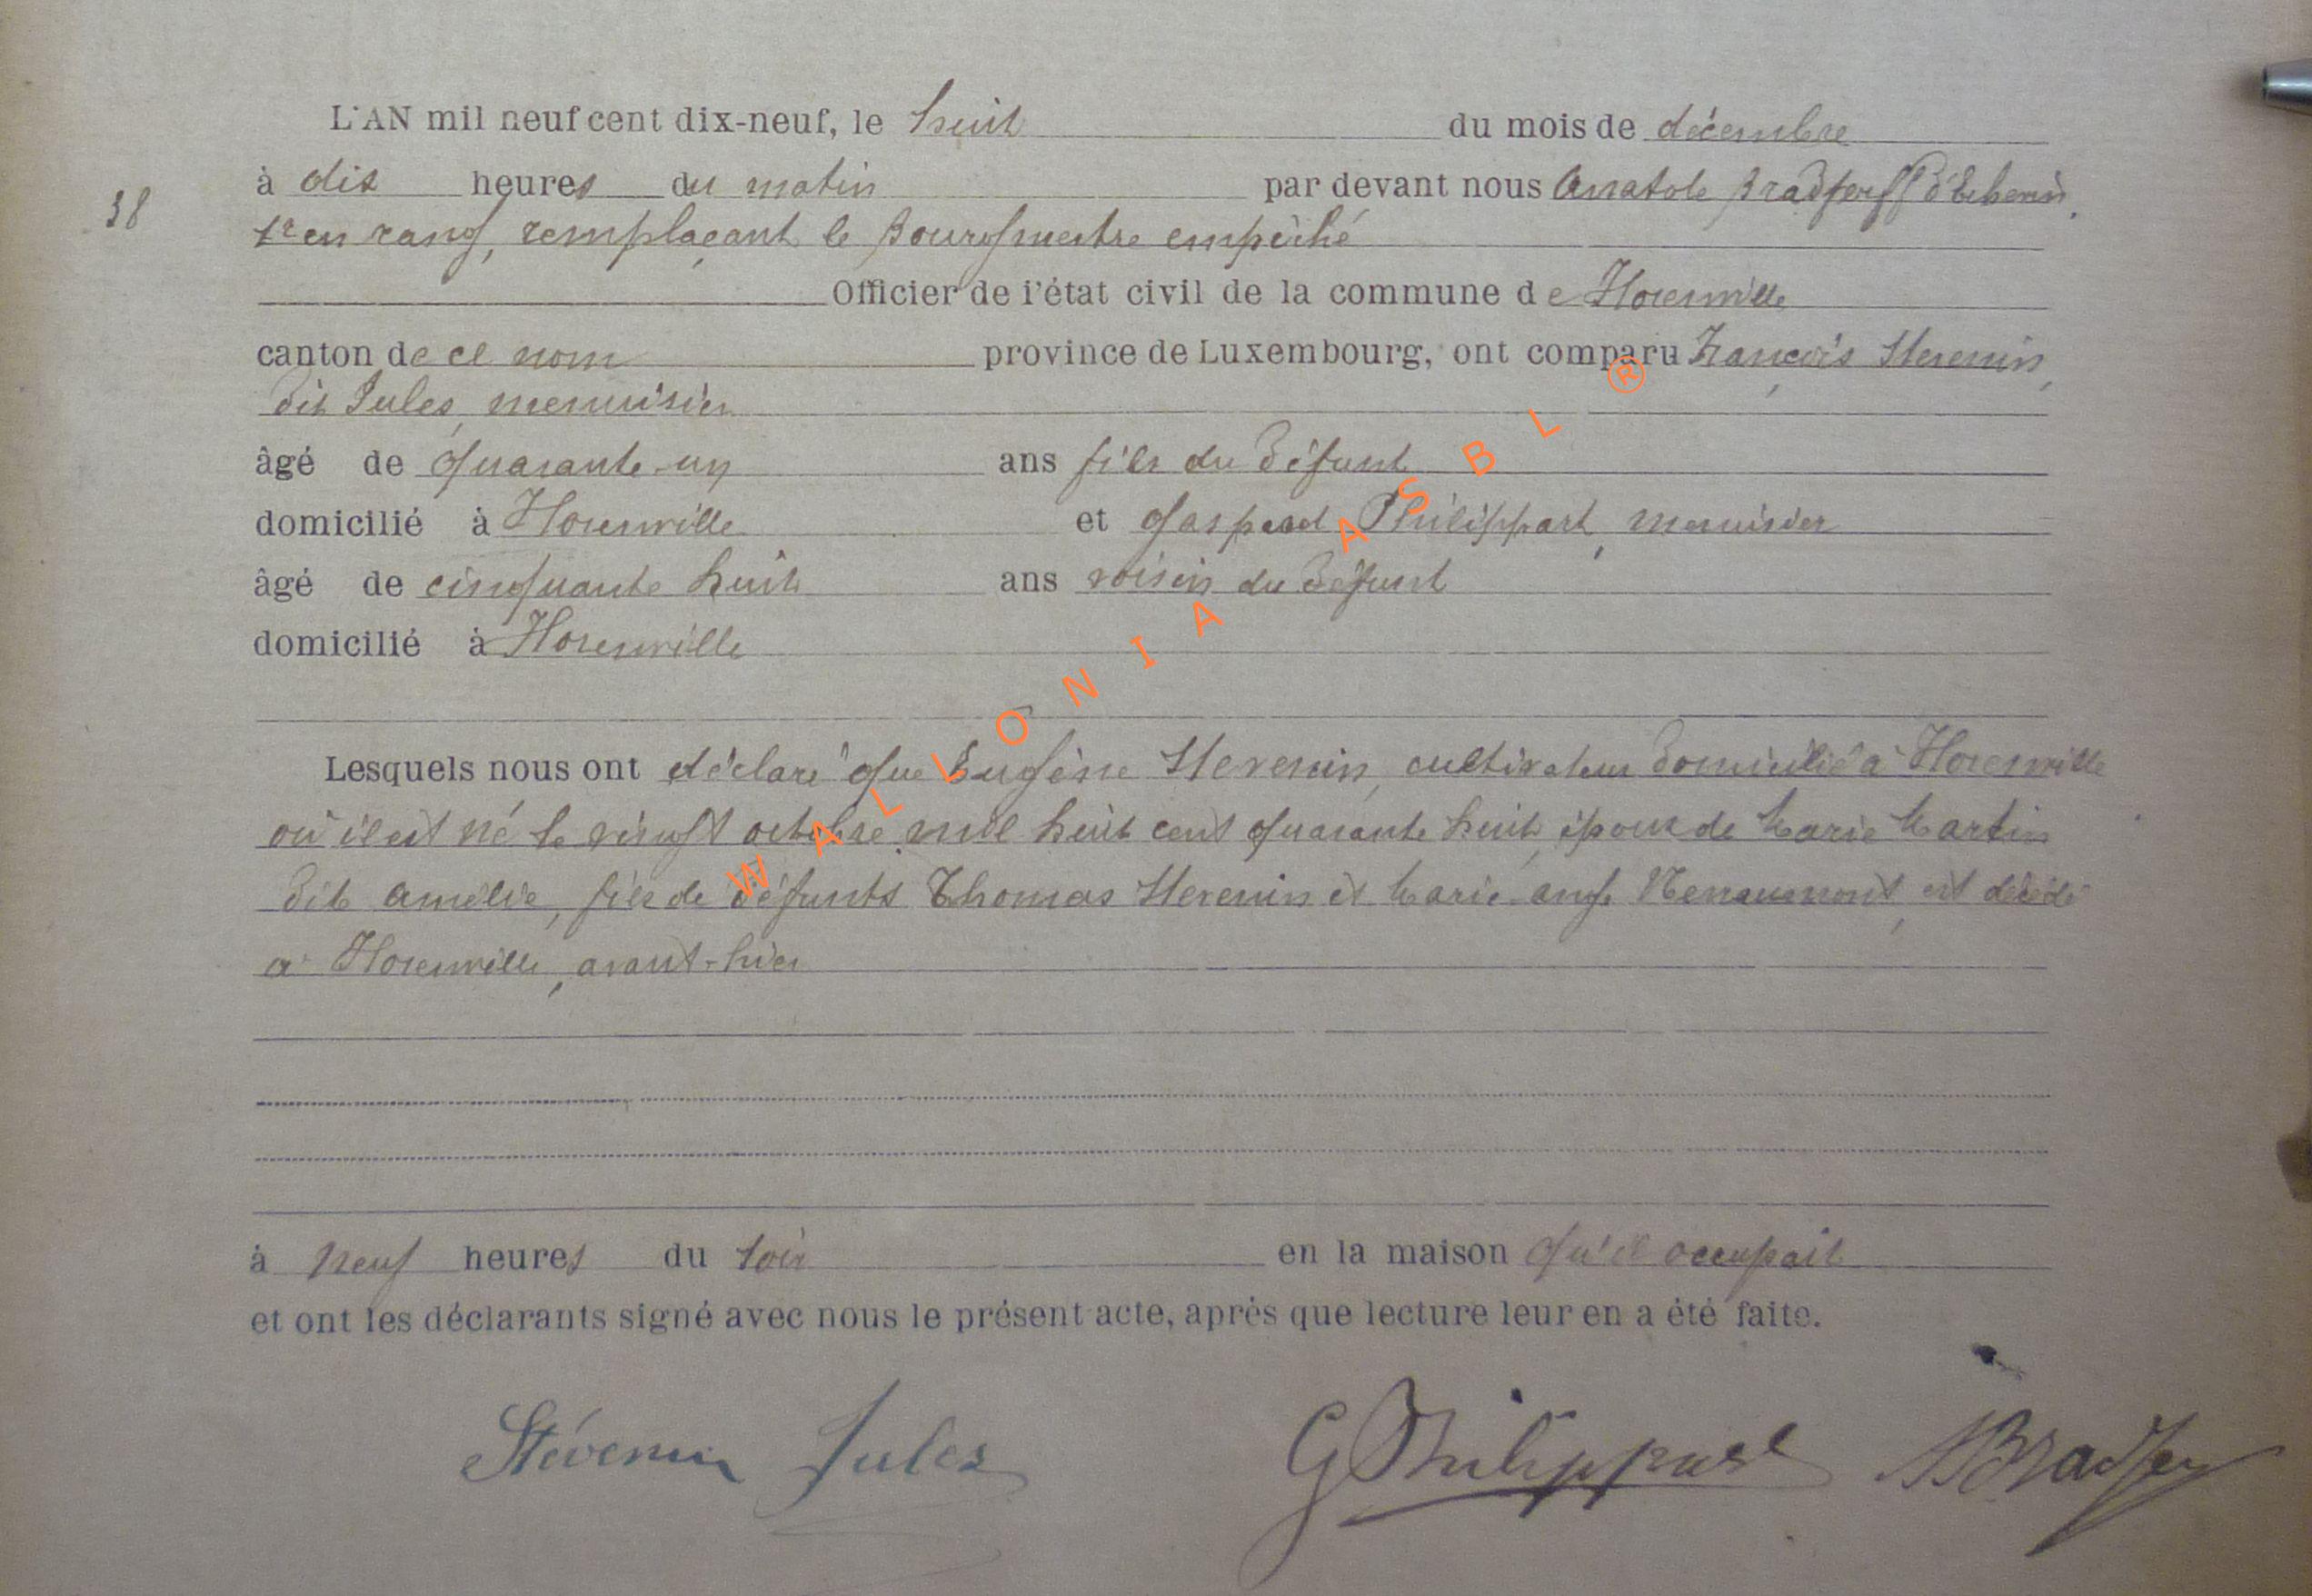 L'AN mil neuf cent dix-neuf, le huit du mois de décembre
à dix heures du matin par devant nous Anatole Bradfer
38
1er en rang, remplaçant le Bourgmestre empêché
Officier de l'état civil de la commune de Florenville
canton de ce nom province de Luxembourg, ont comparu François Stevenin,
dit Jules, menuisier
âgé de quarante-un ans fils du défunt
domicilié à Florenville et Gaspard Philippart, menuisier
âgé de cinquante huit ans voisin du défunt
domicilié à Florenville
WALLÔNIA ASBL ®
Lesquels nous ont déclaré que Eugène Stevenin, cultivateur domicilié à Florenville
où il est né le vingt octobre mil huit cent quarante huit, époux de Marie Martin
dite Amélie, fils de défunts Thomas Stevenin et Marie-Ange est décédé
à Florenville, avant-hier
à neuf heures du soir en la maison qu'il occupait
et ont les déclarants signé avec nous le présent acte, après que lecture leur en a été faite.
Stévenin Jules G Philippart ABradfer